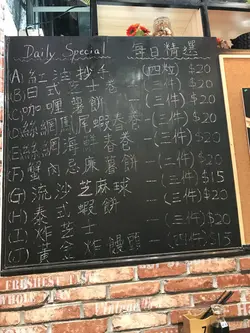 Daily Special 每日精選
(A) 紅油抄手 — (四粒) $20
(B) 日式芝士卷 — (三件) $20
(C) 咖喱薯餅 — (三件) $20
(D) 絲網鳳尾蝦春卷 — (三件) $20
絲網海鮮春卷 — (三件) $20
(F) 蟹肉忌廉薯餅 — (三件) $20
(G) 流沙芝麻球 — (三件) $15
(H) 泰式蝦餅 — (三件) $20
(I) 炸芝士 — (三件) $20
(J) 黃金炸饅頭 — (四件) $15
FRESHEST
WHOLE